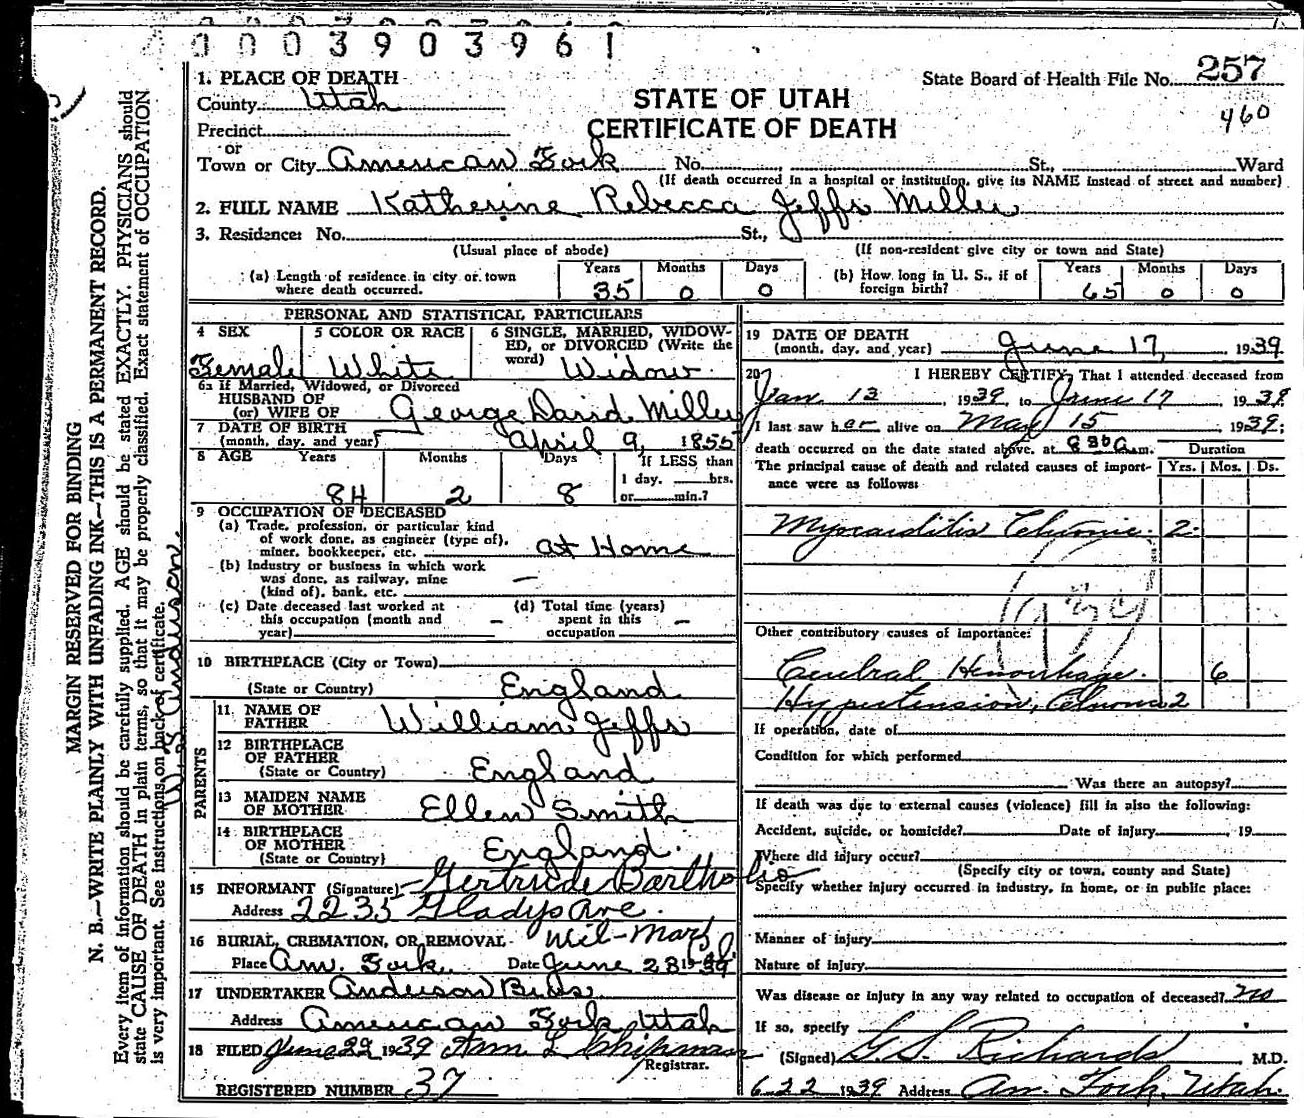 0003903961
1. PLACE OF DEATH
State Board of Health File No. 257
County Utah
STATE OF UTAH
460
Precinct
CERTIFICATE OF DEATH
or
Town or City American Fork No. St., Ward
(If death occurred in a hospital or institution, give its NAME instead of street and number)
2. FULL NAME Katherine Rebecca Jeffs Miller
3. Residence: No. St.,
(Usual place of abode) (If non-resident give city or town and State)
(a) Length of residence in city or town where death occurred. Years 35 Months 0 Days 0
(b) How long in U. S., if of foreign birth? Years 65 Months 0 Days 0
PERSONAL AND STATISTICAL PARTICULARS
4 SEX Female
5 COLOR OR RACE White
6 SINGLE, MARRIED, WIDOWED, or DIVORCED (Write the word) Widow
6a If Married, Widowed, or Divorced
HUSBAND OF
(or) WIFE OF George David Miller
7 DATE OF BIRTH
(month, day, and year) April 9, 1855
8 AGE Years 84 Months 2 Days 8
If LESS than
1 day, hrs.
or min.?
9 OCCUPATION OF DECEASED
(a) Trade, profession, or particular kind
of work done, as engineer (type of),
miner, bookkeeper, etc. at Home
(b) Industry or business in which work
was done, as railway, mine
(kind of), bank, etc. —
(c) Date deceased last worked at
this occupation (month and
year) —
(d) Total time (years)
spent in this
occupation —
10 BIRTHPLACE (City or Town)
(State or Country) England
PARENTS
11 NAME OF
FATHER William Jeffs
12 BIRTHPLACE
OF FATHER
(State or Country) England
13 MAIDEN NAME
OF MOTHER Ellen Smith
14 BIRTHPLACE
OF MOTHER
(State or Country) England.
15 INFORMANT (Signature) Gertrude Bartholio
Address 2235 Gladys Ave.
16 BURIAL, CREMATION, OR REMOVAL
Place Am. Fork. Date June 23 1939
17 UNDERTAKER Anderson
Address American Fork Utah
18 FILED June 29 1939 L Chipman
Registrar.
REGISTERED NUMBER 37
19 DATE OF DEATH
(month, day, and year) June 17, 1939
20 I HEREBY CERTIFY, That I attended deceased from
Jan 13, 1939, to June 17 1939
I last saw her alive on May 15 1939;
death occurred on the date stated above, at m.
Duration
The principal cause of death and related causes of importance were as follows:
Yrs. Mos. Ds.
Myocarditis Chronic. 2
Other contributory causes of importance:
Cerebral Hemorrhage. 6
Hypertension, Chronic 2
If operation, date of
Condition for which performed
Was there an autopsy?
If death was due to external causes (violence) fill in also the following:
Accident, suicide, or homicide? Date of injury , 19
Where did injury occur?
(Specify city or town, county and State)
Specify whether injury occurred in industry, in home, or in public place:
Manner of injury
Nature of injury
Was disease or injury in any way related to occupation of deceased? no
If so, specify
(Signed) G. S. Richards M.D.
6 22 1939 Address Am. Fork, Utah.
MARGIN RESERVED FOR BINDING
N. B.—WRITE PLAINLY WITH UNFADING INK—THIS IS A PERMANENT RECORD.
Every item of information should be carefully supplied. AGE should be stated EXACTLY. PHYSICIANS should
state CAUSE OF DEATH in plain terms, so that it may be properly classified. Exact statement of OCCUPATION
is very important. See instructions on back of certificate.